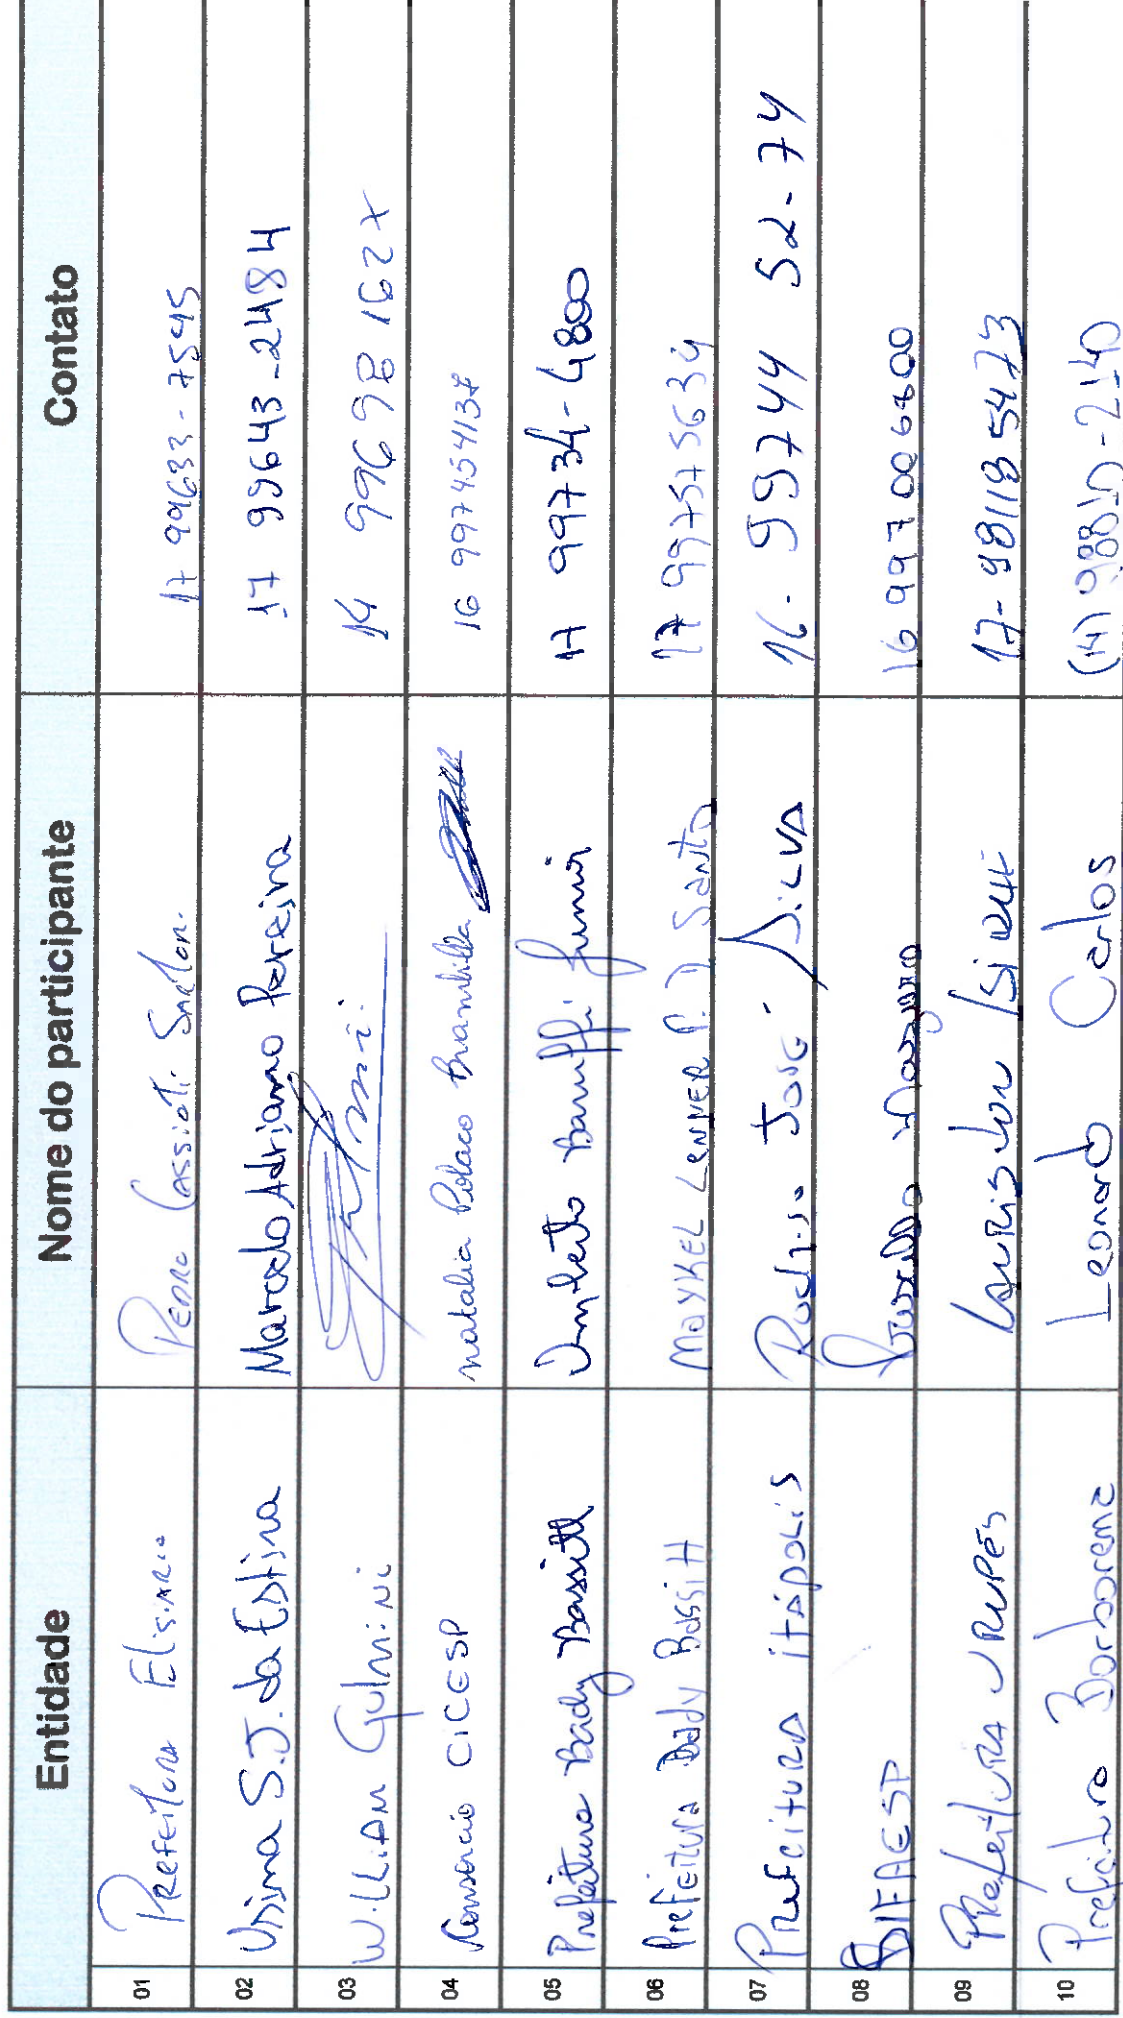 Entidade Nome do participante Contato
01 Prefeitura Elisiario Pedro Cassioti Sartori 17 99633-7545
02 Usina S.J. da Estiva Marcelo Adriano Pereira 17 99643-2484
03 William Gulmini 14 99698 1627
04 Consorcio CICESP natalia Polaco Brambilla 16 997454137
05 Prefeitura Bady Bassitt Umberto Banuffi Junior 17 99734-4800
06 Prefeitura Bady Bassitt Maykel Lenner P. D Santo 17 997575634
07 Prefeitura itápolis Rodrigo José Silva 16. 99744 52-74
08 16 997006800
09 Prefeitura URUPÊS Lauriston 17-981185473
10 Prefeitura Borborema Leonardo Carlos